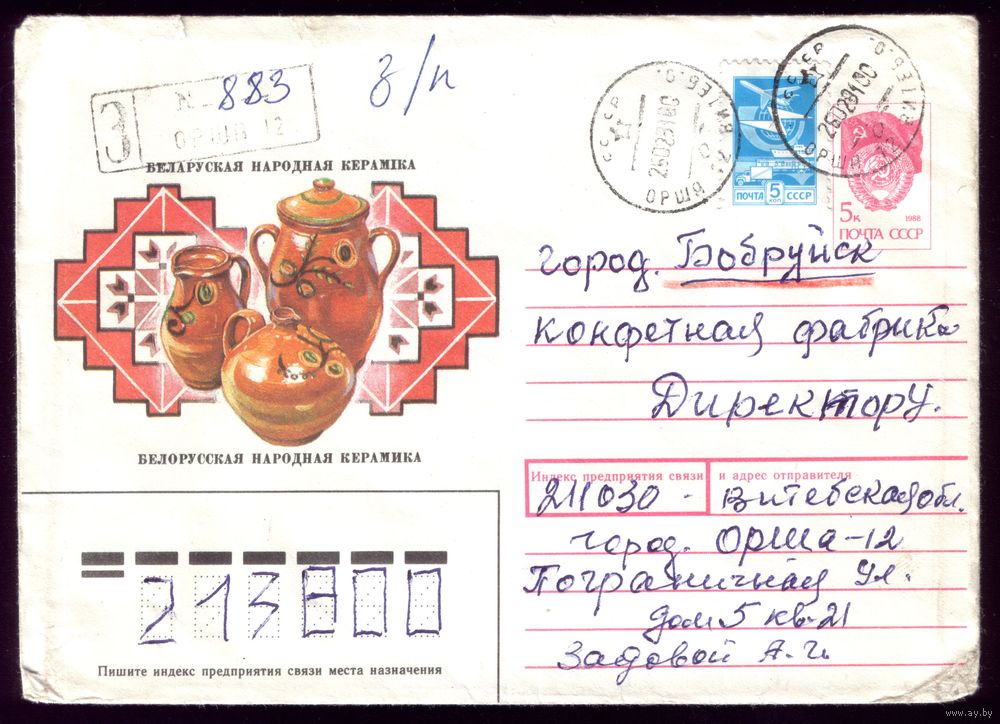 N 883
З ОРША 12
з/п
БЕЛАРУСКАЯ НАРОДНАЯ КЕРАМІКА
БЕЛОРУССКАЯ НАРОДНАЯ КЕРАМИКА
СССР
ОРША
СССР
ОРША
ПОЧТА 5 КОП СССР
5к 1988
ПОЧТА СССР
город. Бобруйск
конфетная фабрика
Директору.
Индекс предприятия связи и адрес отправителя
211030 - Витебская обл.
город. ОРША-12
Пограничная ул.
дом 5 кв-21
213800
Пишите индекс предприятия связи места назначения
www.ay.by